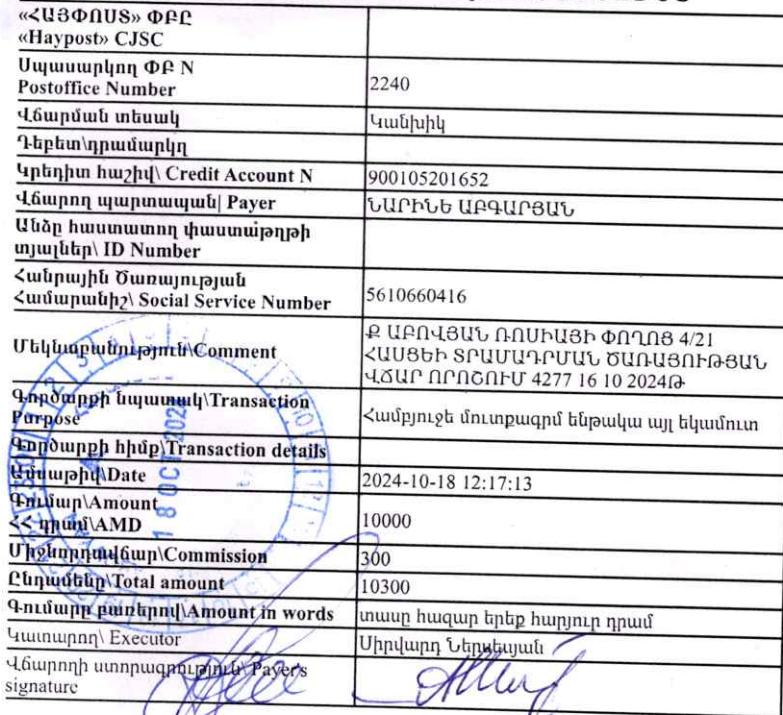 «ՀԱՅՓՈՍՏ» ՓԲԸ
«Haypost» CJSC
Սպասարկող ՓԲ N
Postoffice Number
2240
Վճարման տեսակ
Կանխիկ
Դեբետ\դրամարկղ
Կրեդիտ հաշիվ\ Credit Account N
900105201652
Վճարող պարտապան| Payer
ՆԱՐԻՆԵ ԱԲԳԱՐՅԱՆ
Անձը հաստատող փաստաթղթի
տյալներ\ ID Number
Հանրային Ծառայության
Համարանիշ\ Social Service Number
5610660416
Մեկնաբանություն\Comment
Ք ԱԲՈՎՅԱՆ ՌՈՍԻԱՅԻ ՓՈՂՈՑ 4/21
ՀԱՍՑԵԻ ՏՐԱՄԱԴՐՄԱՆ ԾԱՌԱՅՈՒԹՅԱՆ
ՎՃԱՐ ՈՐՈՇՈՒՄ 4277 16 10 2024Թ
Գործարքի նպատակ\Transaction
Purpose
Համբյուջե մուտքագրմ ենթակա այլ եկամուտ
Գործարքի հիմք\Transaction details
Ամսաթիվ\Date
2024-10-18 12:17:13
Գումար\Amount
ՀՀ դրամ\AMD
10000
Միջնորդավճար\Commission
300
Ընդամենը\Total amount
10300
Գումարը բառերով\Amount in words
տասը հազար երեք հարյուր դրամ
Կատարող\ Executor
Սիրվարդ Ներսեսյան
Վճարողի ստորագրություն\ Payer's
signature
18 OCT 202